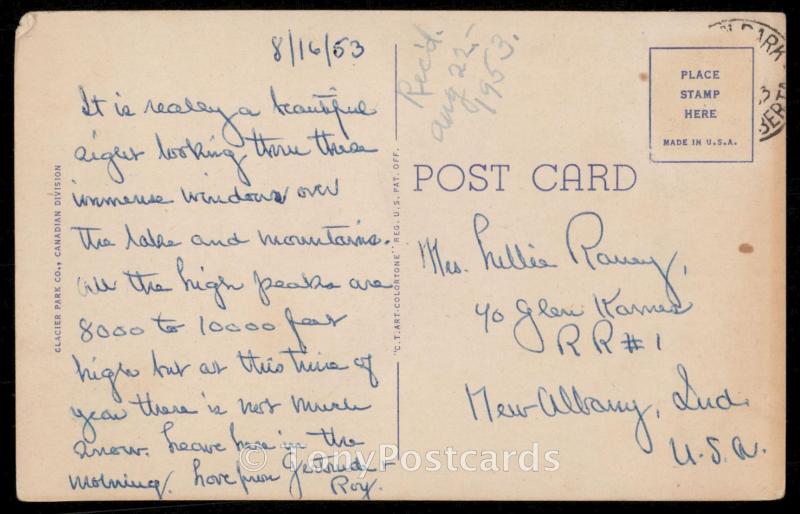 8/16/53
It is realey a beautiful
sight looking thru these
immense windows over
the lake and mountains.
All the high peaks are
8000 to 10000 feet
high but at this time of
year there is not much
snow. Leave here in the
morning. Love from Gertrude -
Roy.
GLACIER PARK CO., CANADIAN DIVISION
"C.T. ART-COLORTONE" REG. U.S. PAT. OFF.
Rec'd.
Aug 22,-
1953.
PARK
PLACE
STAMP
HERE
MADE IN U.S.A.
POST CARD
Mrs. Lillie Raney,
% Glen Karnes
RR#1
New Albany, Ind.
U.S.A.
© TonyPostcards